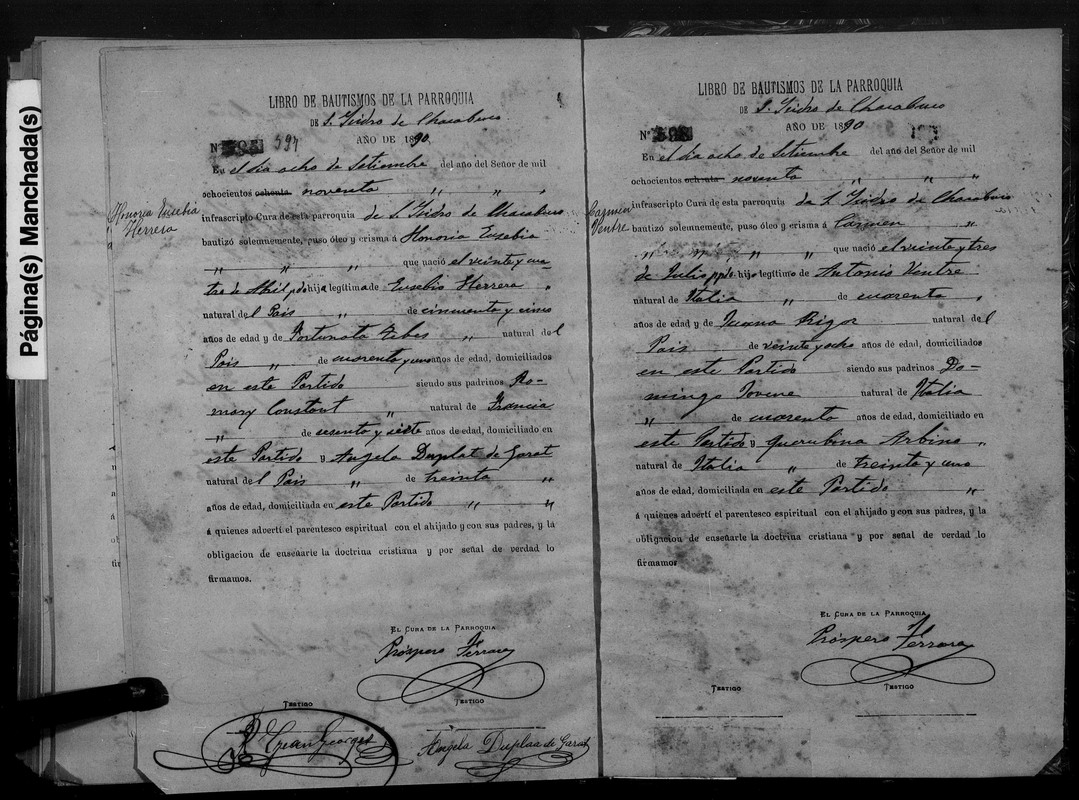 Página(s) Manchada(s)
LIBRO DE BAUTISMOS DE LA PARROQUIA
DE S. Isidro de Chacabuco
Nº 594 AÑO DE 1890
En el dia ocho de Setiembre del año del Señor de mil
ochocientos ochenta noventa " " "
Honoria Eusebia
Herrera
infrascripto Cura de esta parroquia de S. Isidro de Chacabuco
bautizó solemnemente, puso óleo y crisma á Honoria Eusebia
" " " que nació el veinte y cua-
tro de Abril ppdo hija legítima de Eusebio Herrera "
natural del Pais " de cincuenta y cinco
años de edad y de Fortunata " natural del
Pais " de cuarenta y uno años de edad, domiciliados
en este Partido siendo sus padrinos Ro-
mary Constant " natural de Francia
" de sesenta y siete años de edad, domiciliado en
este Partido y Angela Duplat de Garat
natural del Pais " de treinta "
años de edad, domiciliada en este Partido " "
á quienes advertí el parentesco espiritual con el ahijado y con sus padres, y la
obligacion de enseñarle la doctrina cristiana y por señal de verdad lo
firmamos.
EL CURA DE LA PARROQUIA
Próspero Ferrara
TESTIGO
TESTIGO
Angela Duplaa de Garat
LIBRO DE BAUTISMOS DE LA PARROQUIA
DE S. Isidro de Chacabuco
Nº AÑO DE 1890
En el dia ocho de Setiembre del año del Señor de mil
ochocientos ochenta noventa " "
Carmen
Ventre
infrascripto Cura de esta parroquia de S. Isidro de Chacabuco
bautizó solemnemente, puso óleo y crisma á Carmen "
" " " " que nació el veinte y tres
de Julio ppdo. hijo legítimo de Antonio Ventre
natural de Italia " de cuarenta "
años de edad y de Juana natural del
Pais de veinte y ocho años de edad, domiciliados
en este Partido siendo sus padrinos Do-
mingo Iovine natural de Italia
" de cuarenta años de edad, domiciliado en
este Partido y Querubina Arbine "
natural de Italia " de treinta y uno
años de edad, domiciliada en este Partido "
á quienes advertí el parentesco espiritual con el ahijado y con sus padres, y la
obligacion de enseñarle la doctrina cristiana y por señal de verdad lo
firmamos
EL CURA DE LA PARROQUIA
Próspero Ferrara
TESTIGO
TESTIGO